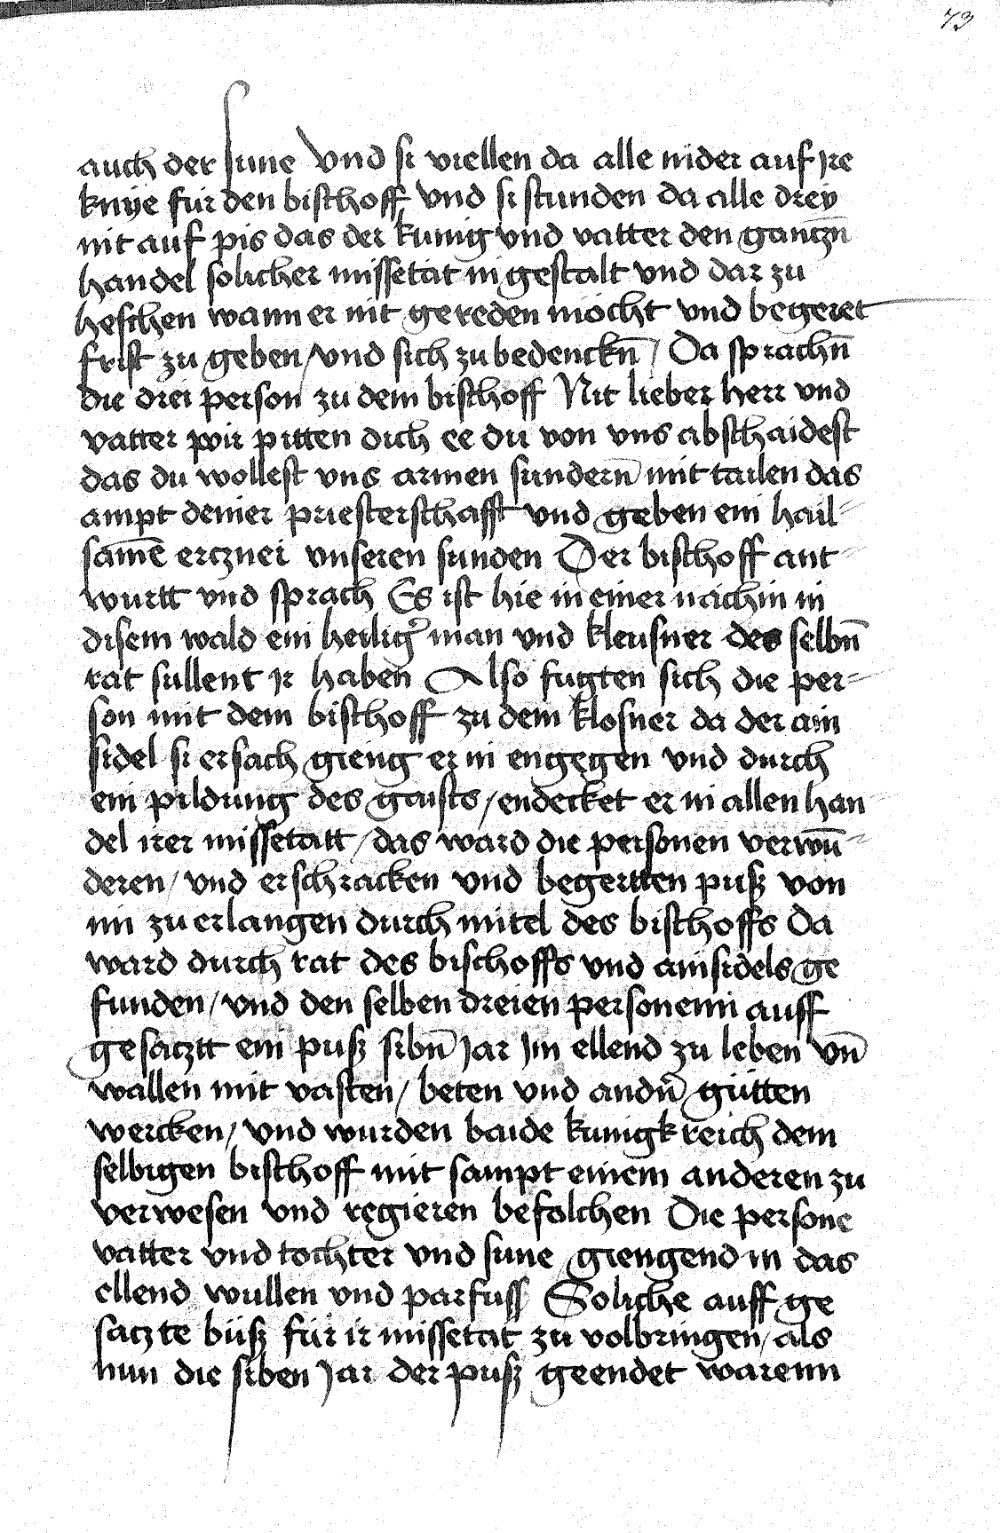 73
auch der sune Vnd si viellen da alle nider auf ire
knÿe für den bischoff vnd si stunden da alle dreÿ
nit auf pis das der kunig vnd vatter den gantzn̄
handel solicher missetat in gestalt vnd dar zu
heschen wann er nit gereden möcht vnd begeret
frist zu geben / vnd sich zu bedenckn̄ / Da sprachn̄
die drei person zu dem bischoff Nit lieber herr vnd
vatter wir pitten dich ee du von vns abschaidest
das du wollest vns armen sundern̄ mit tailen das
ampt deiner priesterschafft vnd geben ein hail-
samē ercznei vnseren sunden Der bischoff ant-
wurtt vnd sprach Es ist hie in einer nachin in
disem wald ein heilig̾ man vnd kleusner des selbn̄
rat sullent ir haben Also fugten sich die per-
son mit dem bischoff zu dem klosner da der ain
sidel si ersach gieng er in engegen vnd durch
ein pildung des gaists / endecket er in allen han-
del irer missetatt / das ward die personen verwū-
deren / vnd erschracken vnd begertten pusz von
im zu erlangen durch mitel des bischoffs Da
ward durch rat des bischoffs vnd ainsidels ge
funden / vnd den selben dreien personenn auff
gesacztt ein pusz sibn̄ Jar Jm ellend zu leben vn̄
wallen mit vasten / beten vnd andn̄ gütten
wercken / vnd wurden baide kunigkreich dem
selbigen bischoff mit sampt einem anderen zu
verwesen vnd regieren befolchen Die persone
vatter vnd tochter vnd sune giengend in das
ellend wullen vnd parfuss Soliche auff ge
saczte büsz für ir missetat zu volbringen / als
nun die siben Jar der pusz geendet warenn